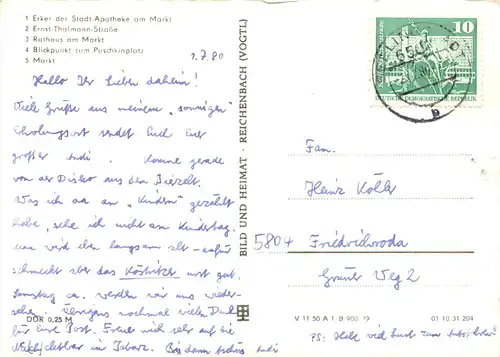 1 Erker der Stadt-Apotheke am Markt
2 Ernst-Thälmann-Straße
3 Rathaus am Markt
4 Blickpunkt zum Puschkinplatz
5 Markt
1.7.80
Hallo Ihr Lieben daheim!
Viele Grüße aus meinem "sonnigen"
Erholungsort sendet Euch Euer
großer Andi. Komme gerade
von der Disko aus dem Bierzelt.
Was ich da an "Kindern" gezählt
habe, sehe ich nicht am Kindertag.
man wird eben langsam alt - dafür
schmeckt aber das Köstritzer sehr gut.
Samstag werden wir uns wieder-
sehen. Übrigens nochmal vielen Dank
für Eure Post. Freue mich sehr auf die
in Tabarz. Bis dann tschüs Andi
DDR 0,25 M
BILD UND HEIMAT · REICHENBACH (VOGTL)
10
DEUTSCHE DEMOKRATISCHE REPUBLIK
65
b
Fam.
Heinz Köllr
5804 Friedrichroda
Grüner Weg 2
V 11 50 A 1 B 900 79
01 10 31 204
PS: Habe viel Lust zum